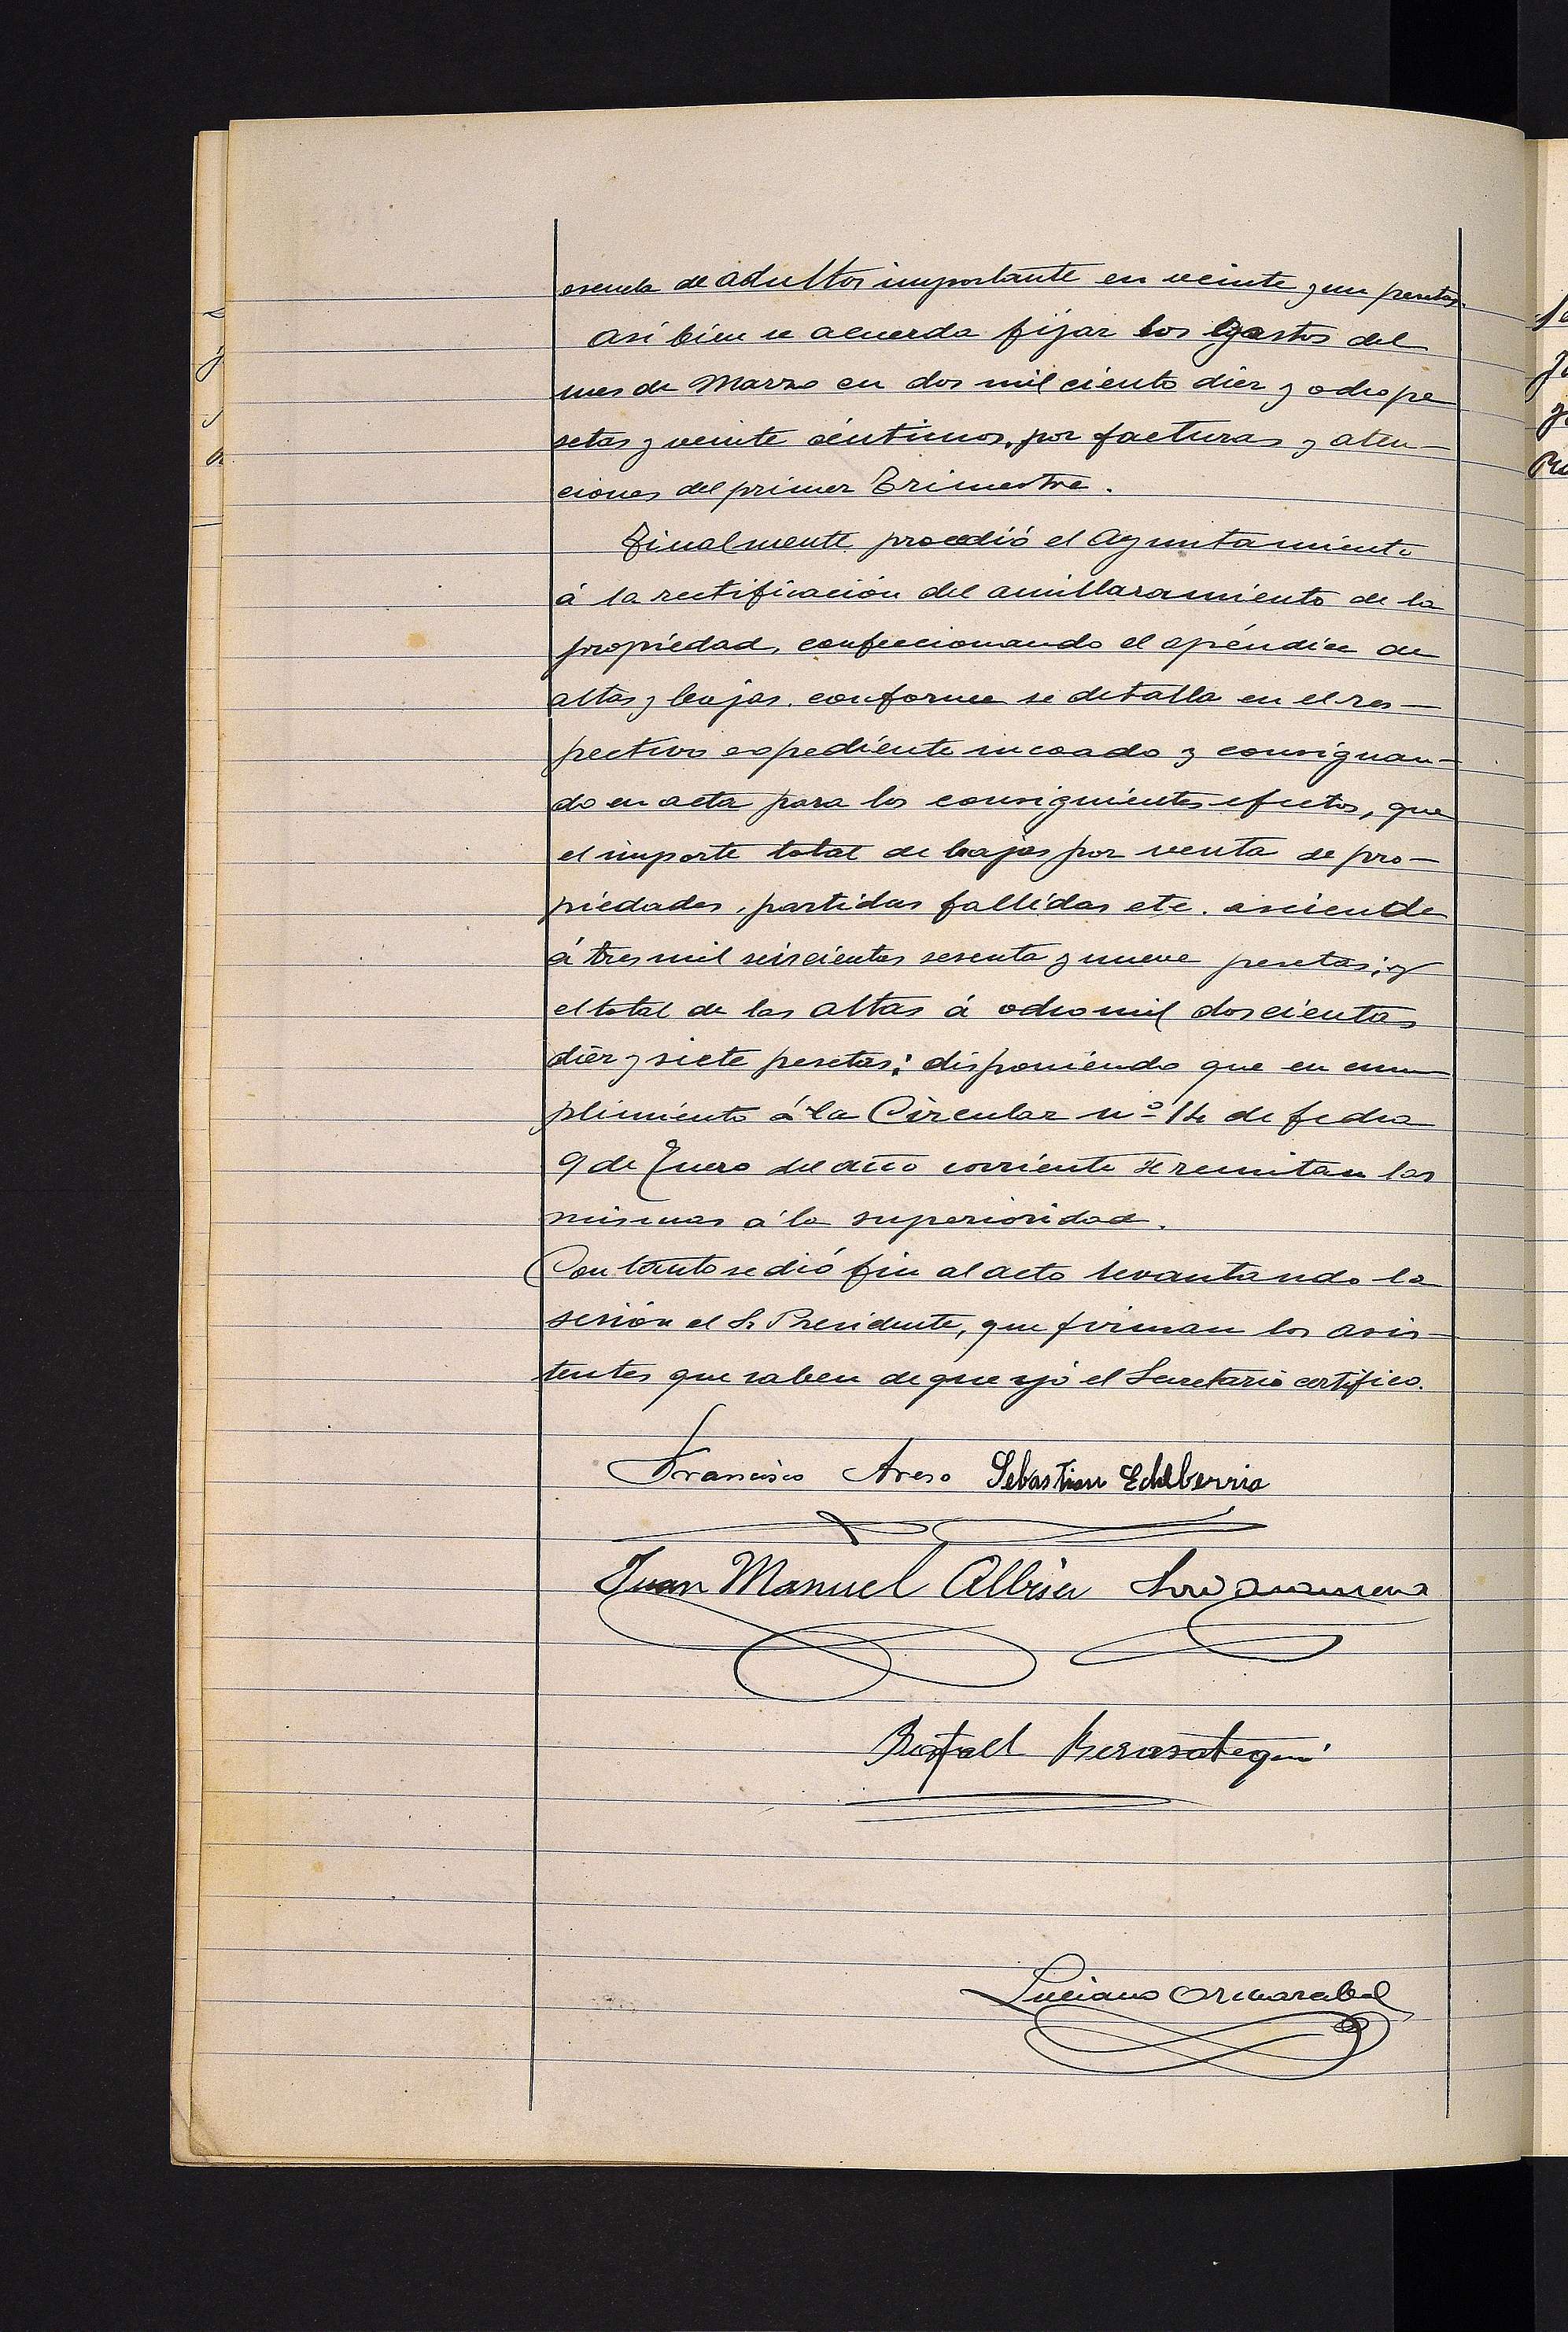 escuela de adultos importante en veinte y un pesetas.
Así bien se acuerda fijar los gastos del
mes de Marzo en dos mil ciento diez y ocho pe
setas y veinte céntimos, por facturas y aten-
ciones del primer Trimestre.
Finalmente procedió el Ayuntamiento
á la rectificación del amillaramiento de la
propiedad, confeccionando el apéndice de
altas y bajas, conforme se detalla en el res-
pectivo espediente incoado y consignan-
do en acta para los consiguientes efectos, que
el importe total de bajas por venta de pro-
piedades, partidas fallidas etc. asciende
á tres mil seiscientas sesenta y nueve pesetas; y
el total de las altas á ocho mil doscientas
diez y siete pesetas: disponiendo que en cum
plimiento á la Circular nº 14 de fecha
9 de Enero del año corriente se remitan las
mismas á la superioridad.
Con tanto se dió fin al acto levantando la
sesión el Sr Presidente, que firman los asis-
tentes que saben de que yó el Secretario certifico.
Francisco Areso Sebastian Echeberria
Juan Manuel Albisu
Rafael Berasategui
Luciano Ormazabal